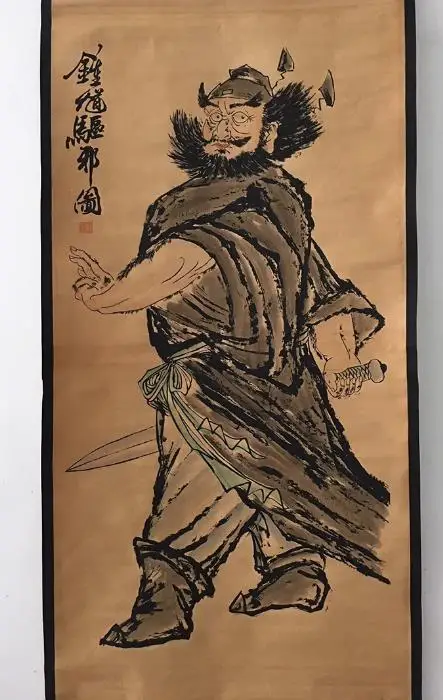 鍾馗驅邪圖